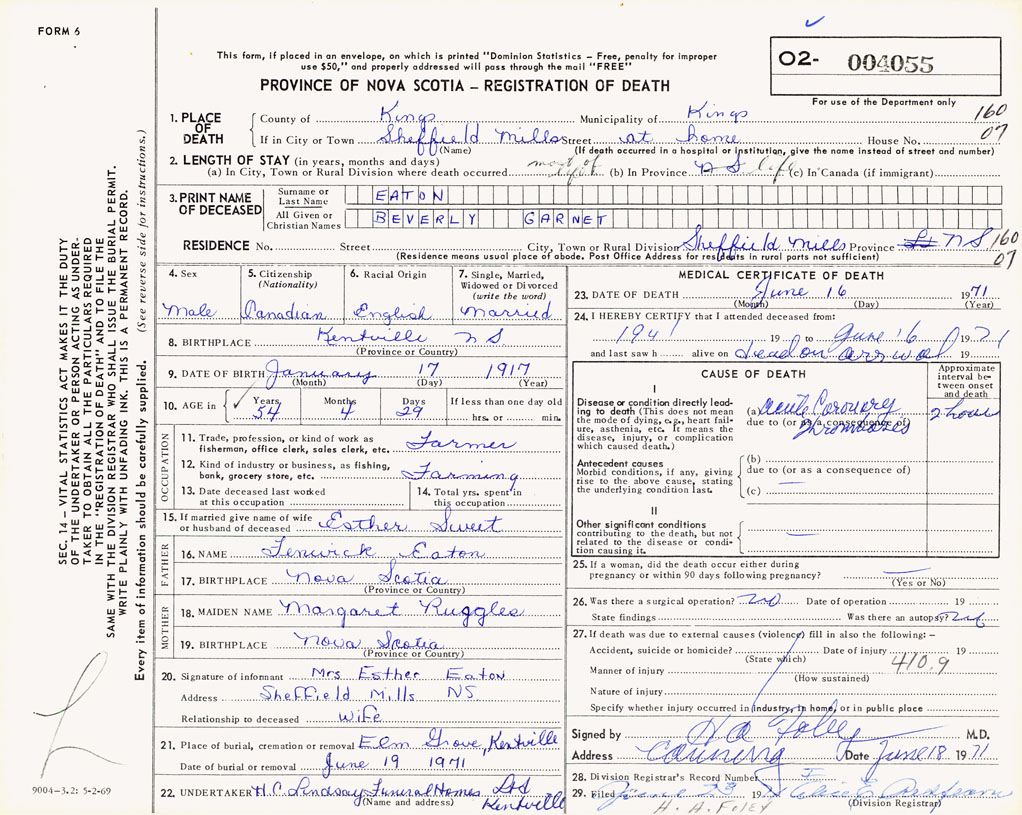 FORM 6
This form, if placed in an envelope, on which is printed "Dominion Statistics – Free, penalty for improper
use $50," and properly addressed will pass through the mail "FREE"
PROVINCE OF NOVA SCOTIA – REGISTRATION OF DEATH
O2- 004055
For use of the Department only
1. PLACE OF DEATH
County of Kings Municipality of Kings 160
If in City or Town Sheffield Mills Street at home House No. 07
(Name) (If death occurred in a hospital or institution, give the name instead of street and number)
2. LENGTH OF STAY (in years, months and days)
(a) In City, Town or Rural Division where death occurred most of life (b) In Province N S life (c) In Canada (if immigrant)
3. PRINT NAME OF DECEASED
Surname or Last Name EATON
All Given or Christian Names BEVERLY GARNET
RESIDENCE No. Street City, Town or Rural Division Sheffield Mills Province NS 160
(Residence means usual place of abode. Post Office Address for residents in rural parts not sufficient) 07
4. Sex
Male
5. Citizenship
(Nationality)
Canadian
6. Racial Origin
English
7. Single, Married,
Widowed or Divorced
(write the word)
Married
8. BIRTHPLACE Kentville NS
(Province or Country)
9. DATE OF BIRTH January 17 1917
(Month) (Day) (Year)
10. AGE in
Years Months Days If less than one day old
54 4 29 hrs. or min.
OCCUPATION
11. Trade, profession, or kind of work as
fisherman, office clerk, sales clerk, etc. Farmer
12. Kind of industry or business, as fishing,
bank, grocery store, etc. Farming
13. Date deceased last worked
at this occupation
14. Total yrs. spent in
this occupation
15. If married give name of wife
or husband of deceased Esther Sweet
FATHER
16. NAME Fenwick Eaton
17. BIRTHPLACE Nova Scotia
(Province or Country)
MOTHER
18. MAIDEN NAME Margaret Ruggles
19. BIRTHPLACE Nova Scotia
(Province or Country)
20. Signature of informant Mrs Esther Eaton
Address Sheffield Mills NS
Relationship to deceased Wife
21. Place of burial, cremation or removal Elm Grove, Kentville
Date of burial or removal June 19 1971
22. UNDERTAKER H.C. Lindsay Funeral Homes Ltd
(Name and address) Kentville
MEDICAL CERTIFICATE OF DEATH
23. DATE OF DEATH June 16 1971
(Month) (Day) (Year)
24. I HEREBY CERTIFY that I attended deceased from:
1941 19 to June 16 1971
and last saw h alive on dead on arrival 19
CAUSE OF DEATH
Approximate
interval be-
tween onset
and death
I
Disease or condition directly lead-
ing to death (This does not mean
the mode of dying, e.g., heart fail-
ure, asthenia, etc. It means the
disease, injury, or complication
which caused death.)
(a) Acute Coronary 2 hours
due to (or as a consequence of)
Thrombosis
Antecedent causes
Morbid conditions, if any, giving
rise to the above cause, stating
the underlying condition last.
(b)
due to (or as a consequence of)
(c)
II
Other significant conditions
contributing to the death, but not
related to the disease or condi-
tion causing it.
25. If a woman, did the death occur either during
pregnancy or within 90 days following pregnancy?
(Yes or No)
26. Was there a surgical operation? no Date of operation 19
State findings Was there an autopsy? no
27. If death was due to external causes (violence) fill in also the following: –
Accident, suicide or homicide? Date of injury 19
(State which)
Manner of injury 410.9
(How sustained)
Nature of injury
Specify whether injury occurred in industry, in home, or in public place
Signed by H A Foley M.D.
Address Canning Date June 18 1971
28. Division Registrar's Record Number
29. Filed June 23 1971
(Division Registrar)
H. A. FOLEY
SEC. 14 – VITAL STATISTICS ACT MAKES IT THE DUTY
OF THE UNDERTAKER OR PERSON ACTING AS UNDER-
TAKER TO OBTAIN ALL THE PARTICULARS REQUIRED
IN THE "REGISTRATION OF DEATH" AND TO FILE THE
SAME WITH THE DIVISION REGISTRAR WHO SHALL ISSUE THE BURIAL PERMIT.
WRITE PLAINLY WITH UNFADING INK. THIS IS A PERMANENT RECORD.
Every item of information should be carefully supplied. (See reverse side for instructions.)
9004-3.2: 5-2-69